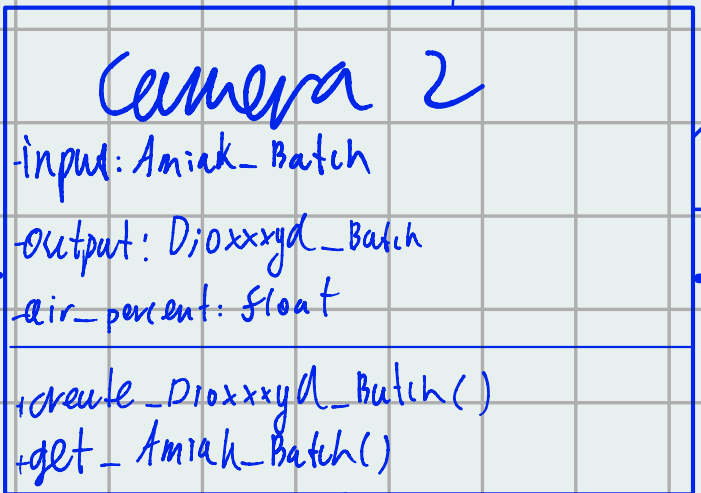 Camera 2
-input: Amiak_Batch
-output: Dioxxxyd_Batch
-air_percent: float
+create_Dioxxxyd_Batch()
+get_Amiak_Batch()